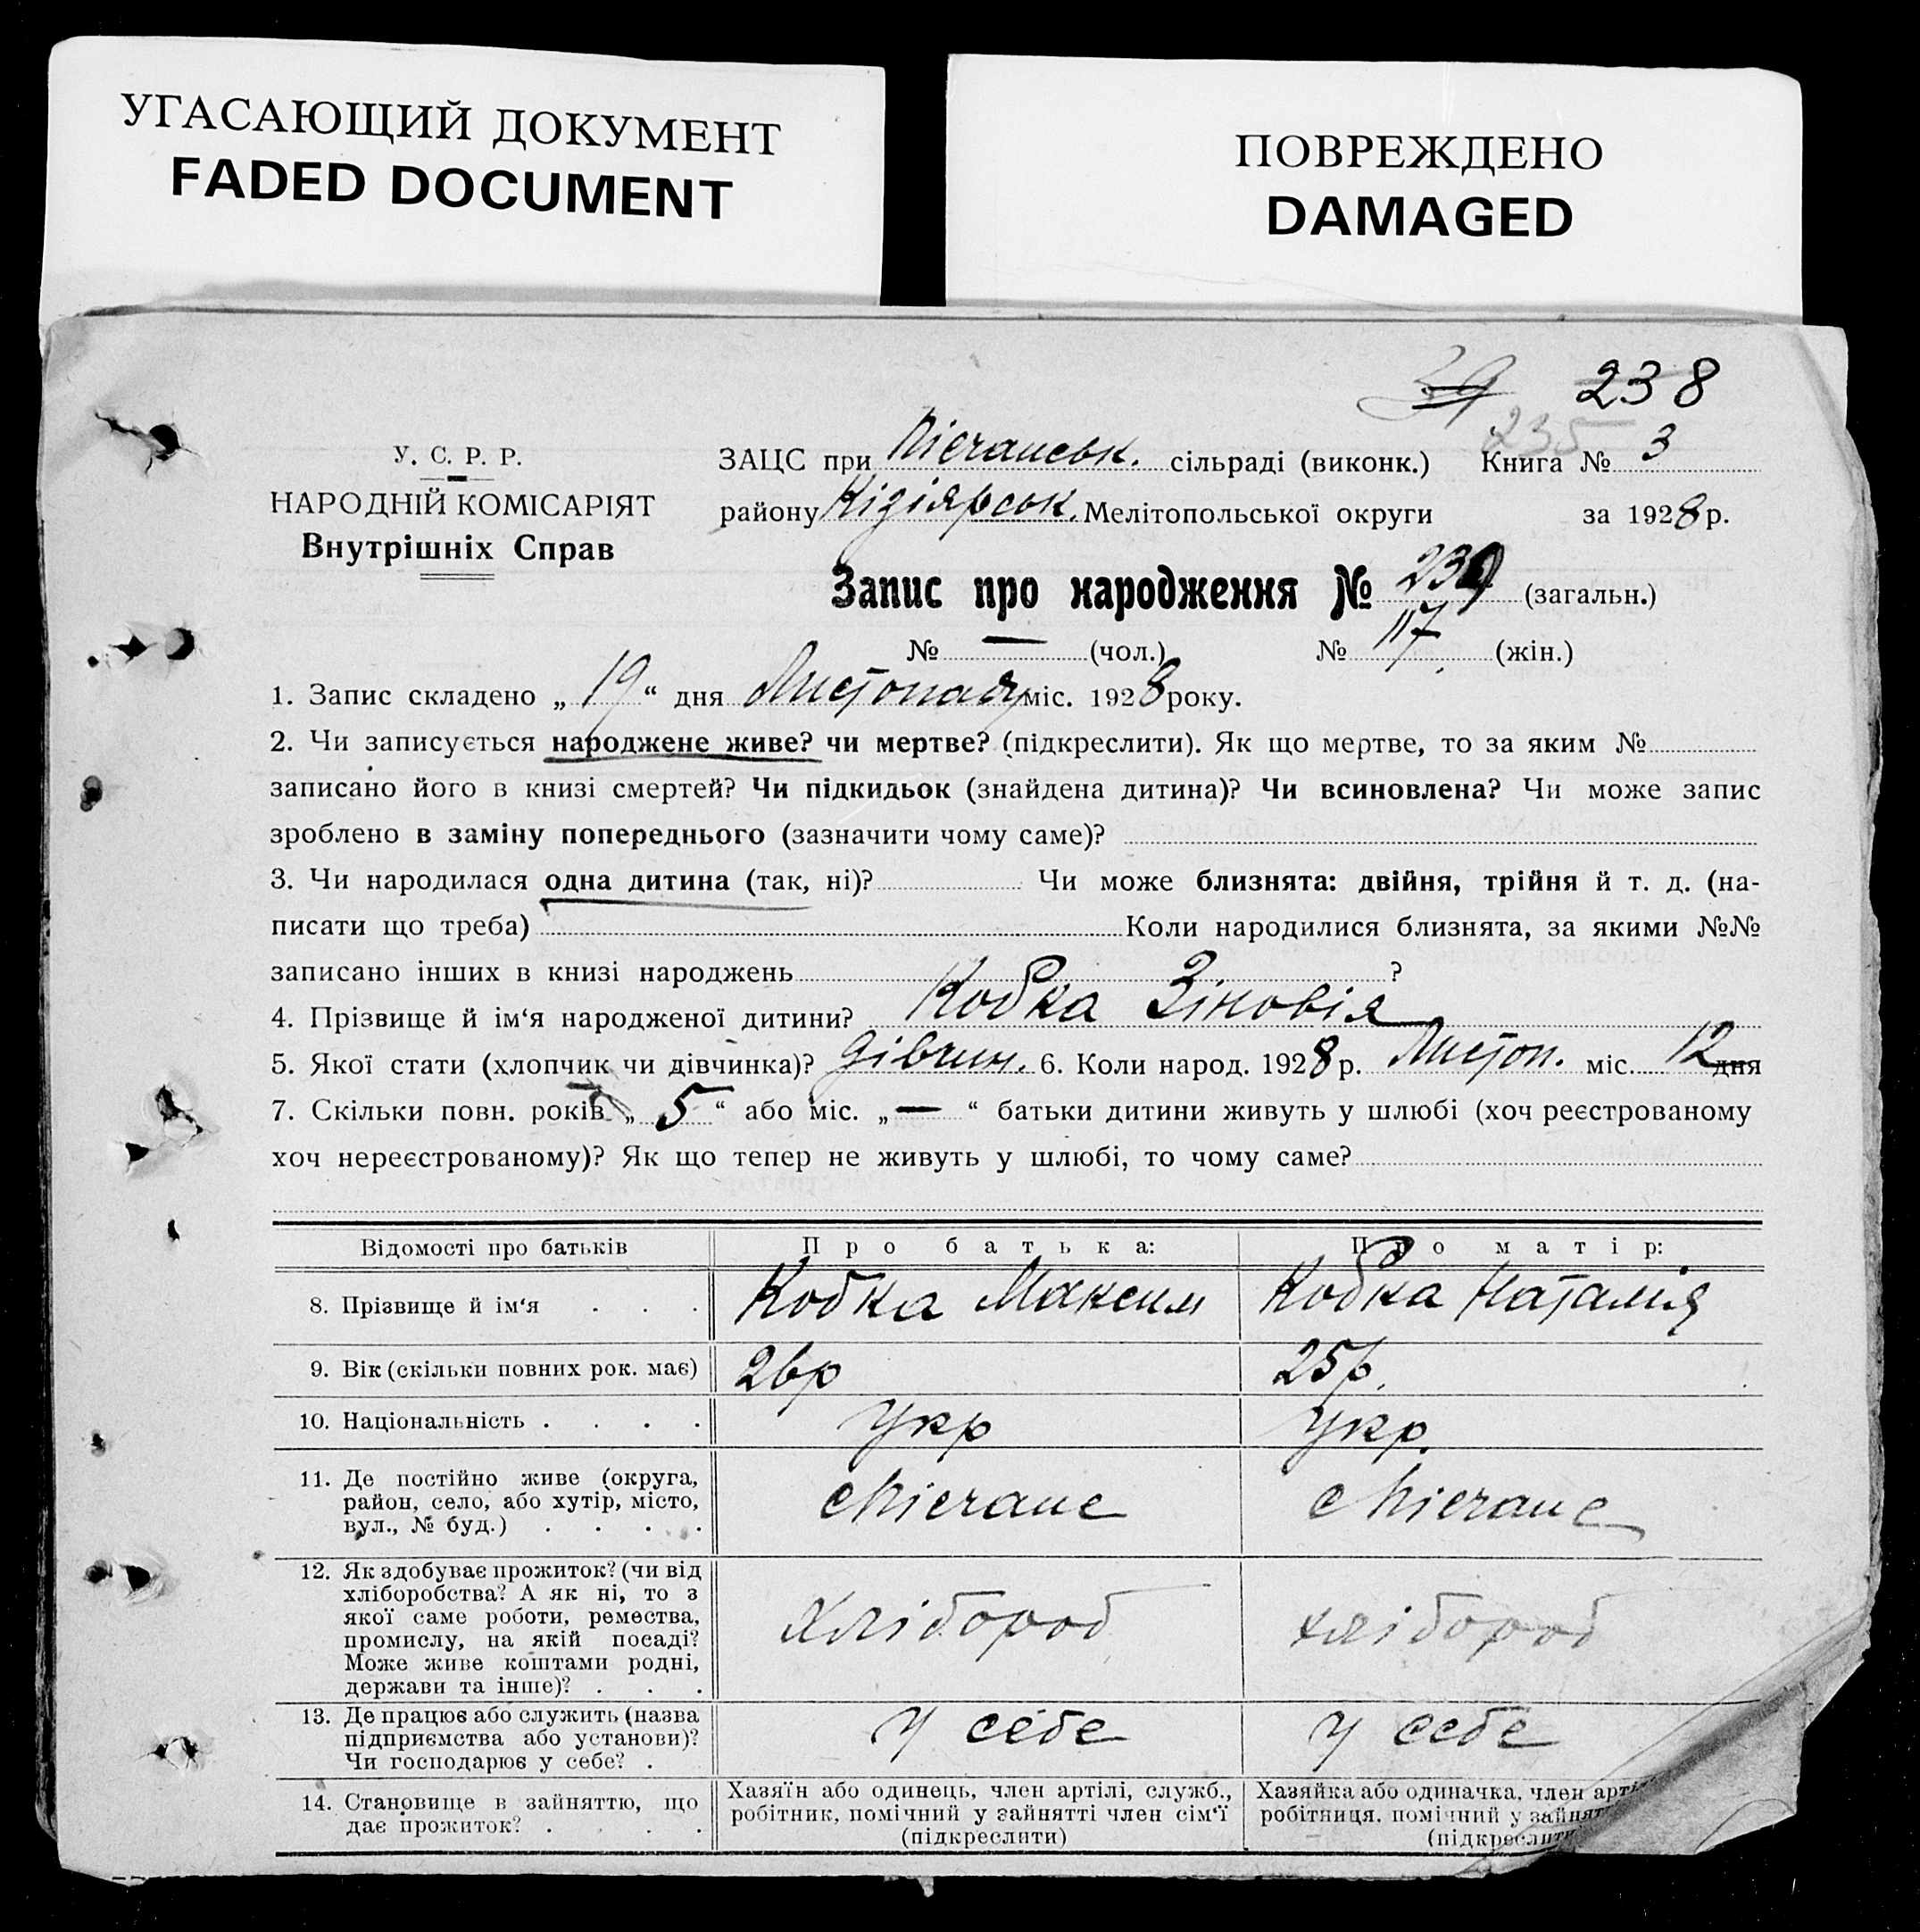 УГАСАЮЩИЙ ДОКУМЕНТ
FADED DOCUMENT
ПОВРЕЖДЕНО
DAMAGED
39 238
235
У. С. Р. Р.
НАРОДНІЙ КОМІСАРІЯТ
Внутрішніх Справ
ЗАЦС при Пісчанськ. сільраді (виконк.) Книга № 3
району Кізіярськ. Мелітопольської округи за 1928 р.
Запис про народження № 239 (загальн.)
№ — (чол.) № 117 (жін.)
1. Запис складено „ 19 “ дня Листопаду міс. 1928 року.
2. Чи записується народжене живе? чи мертве? (підкреслити). Як що мертве, то за яким №
записано його в книзі смертей? Чи підкидьок (знайдена дитина)? Чи всиновлена? Чи може запис
зроблено в заміну попереднього (зазначити чому саме)?
3. Чи народилася одна дитина (так, ні)? Чи може близнята: двійня, трійня й т. д. (на-
писати що треба) Коли народилися близнята, за якими №№
записано інших в книзі народжень ?
4. Прізвище й ім‘я народженої дитини? Кобка Зіновія
5. Якої стати (хлопчик чи дівчинка)? дівчин. 6. Коли народ. 1928 р. Листоп. міс. 12 дня
7. Скільки повн. років „ 5 “ або міс. „ — “ батьки дитини живуть у шлюбі (хоч реєстрованому
хоч нереєстрованому)? Як що тепер не живуть у шлюбі, то чому саме?
Відомості про батьків Про батька: Про матір:
8. Прізвище й ім‘я . . . Кобка Максим Кобка Наталія
9. Вік (скільки повних рок. має) 26р 25р.
10. Національність . . . . Укр Укр.
11. Де постійно живе (округа,
район, село, або хутір, місто,
вул., № буд.) . . . .
с Пісчане с Пісчане
12. Як здобуває прожиток? (чи від
хліборобства? А як ні, то з
якої саме роботи, ремества,
промислу, на якій посаді?
Може живе коштами родні,
держави та інше)? . . .
хлібороб хлібороб
13. Де працює або служить (назва
підприємства або установи)?
Чи господарює у себе? .
у себе у себе
14. Становище в зайняттю, що
дає прожиток? . . . .
Хазяїн або одинець, член артілі, служб.,
робітник, помічний у зайнятті член сім‘ї
(підкреслити)
Хазяйка або одиначка, член арті
робітниця, помічний у зайнят
(підкреслити